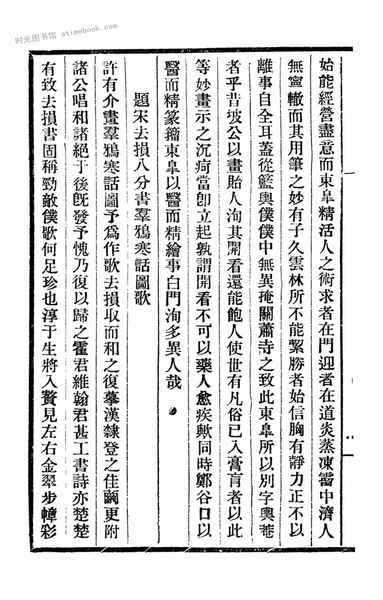 时光图书馆 - atimebook.com
始能經營盡意而東皐精活人之術求者在門迎者在道炎蒸凍霤中濟人
無寧轍而其用筆之妙有子久雲林所不能繄勝者始信胸有靜力正不以
離事自全耳蓋從籃輿僕僕中無異掩關蕭寺之致此東皐所以別字輿菴
者乎昔坡公以畫貽人洵其開看還能飽人使世有凡俗已入膏肓者以此
等妙畫示之沉疴當卽立起孰謂開看不可以藥人愈疾歟同時鄭谷口以
醫而精篆籀東皐以醫而精繪事白門洵多異人哉
題宋去損八分書羣鴉寒話圖歌
許有介畫羣鴉寒話圖予爲作歌去損取而和之復摹漢隸登之佳繭更附
諸公唱和諸絕于後旣發予愧乃復以歸之霍君維翰君甚工書詩亦楚楚
有致去損書固稱勁敵僕歌何足珍也淳于生將入贅見左右金翠步幛彩